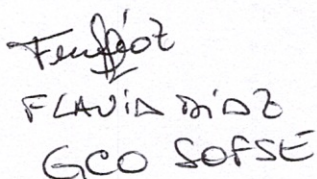 FLAVIA DIAZ
GCO SOFSE